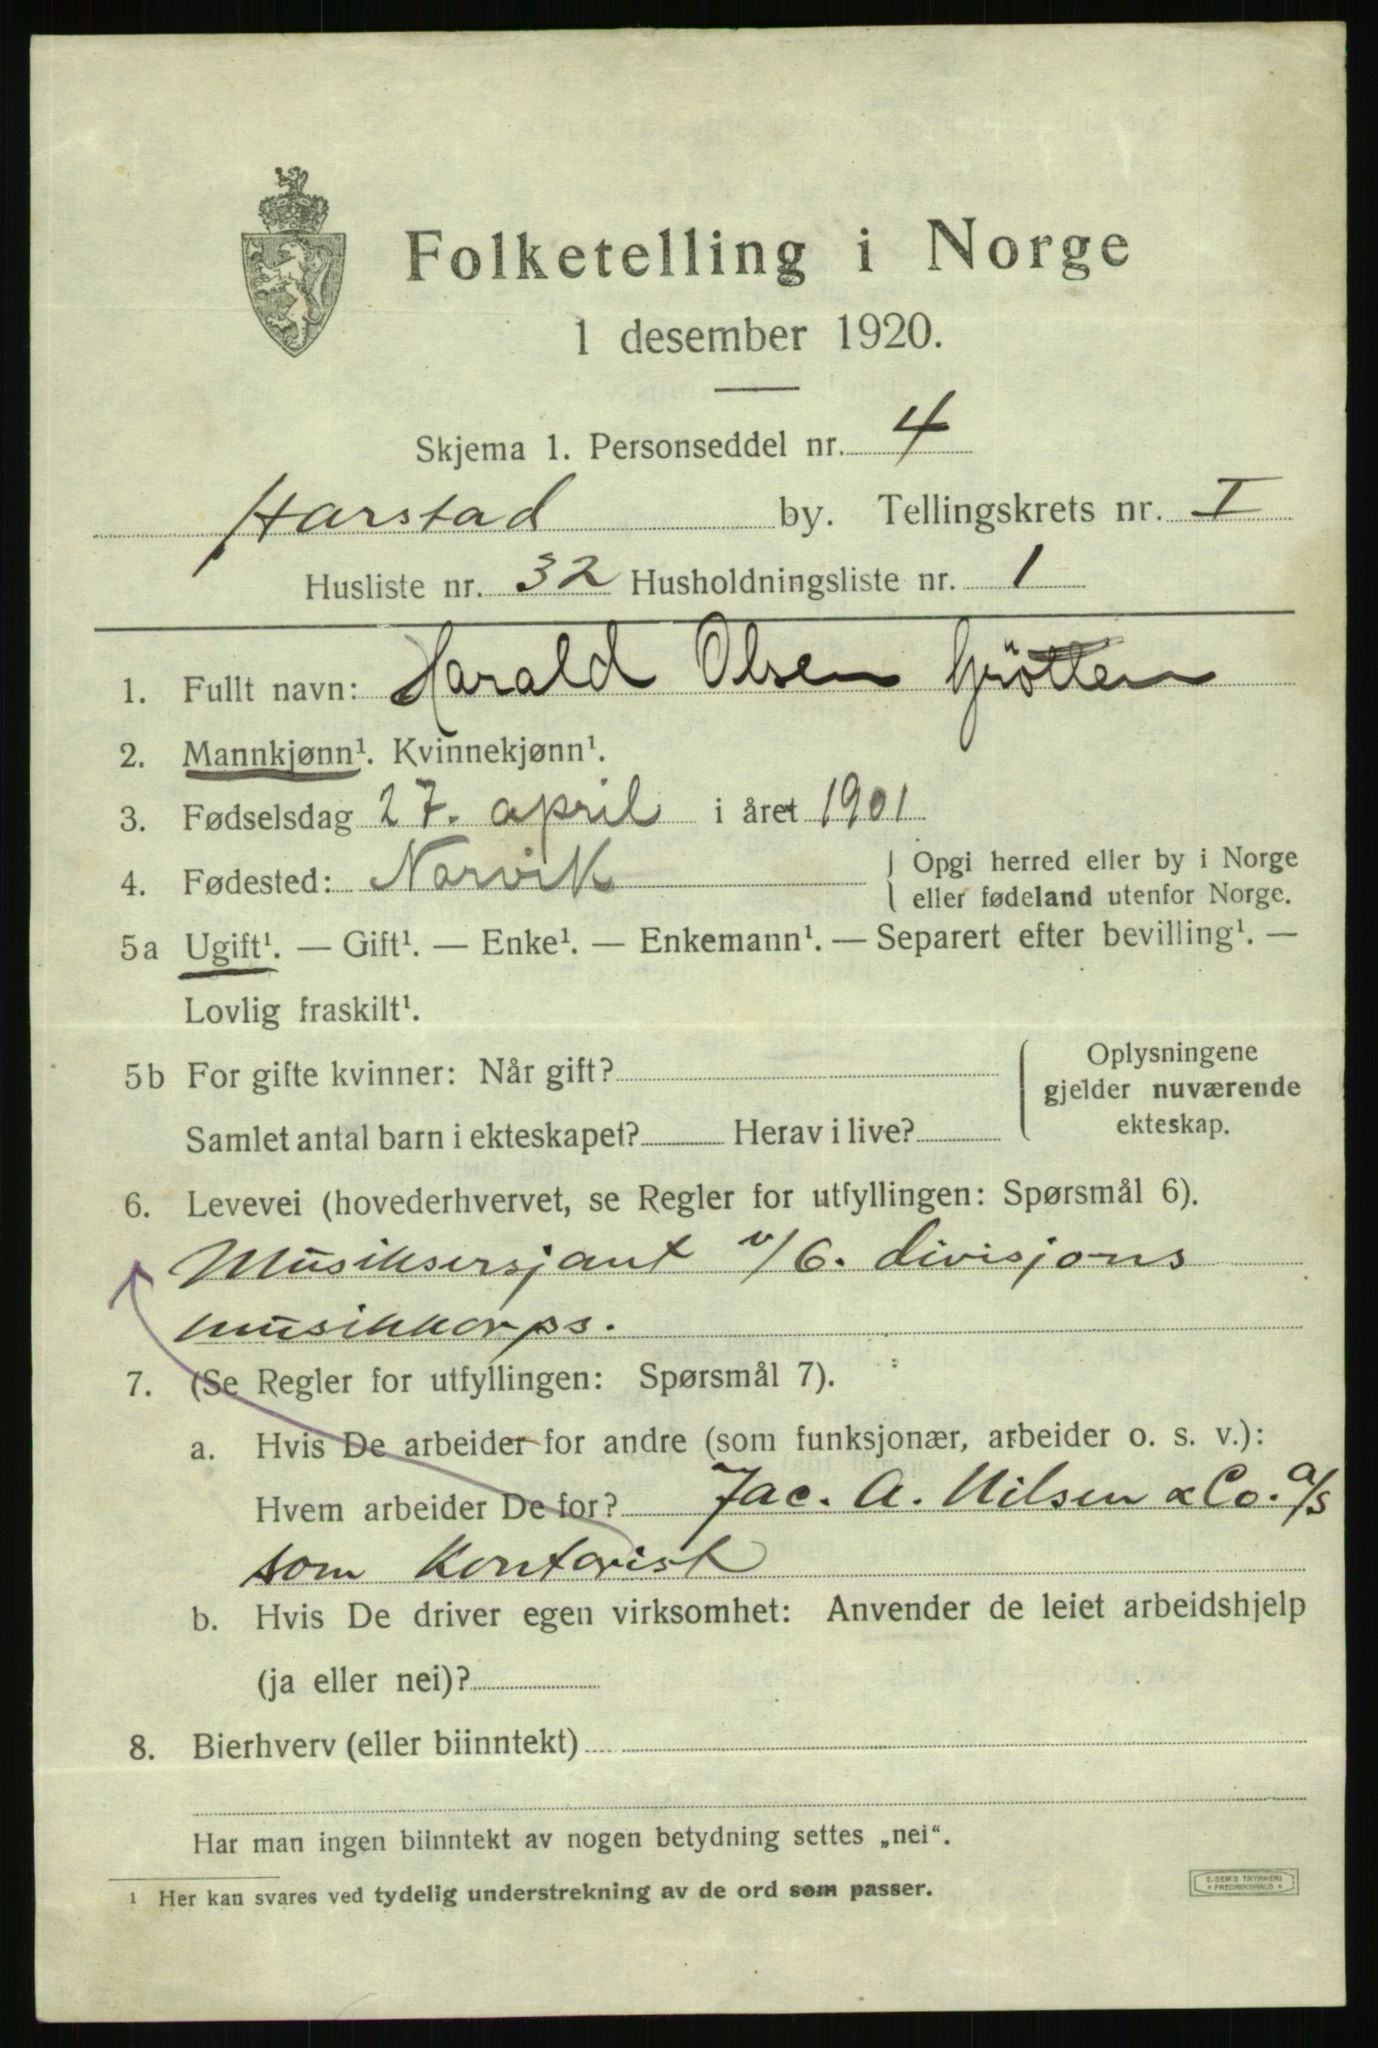 Folketelling i Norge
1 desember 1920.
Skjema 1. Personseddel nr. 4
Harstad by. Tellingskrets nr. I
Husliste nr. 32 Husholdningsliste nr. 1
1. Fullt navn: Harald Olsen Grötten
2. Mannkjønn¹. Kvinnekjønn¹.
3. Fødselsdag 27. april i året 1901
4. Fødested: Narvik { Opgi herred eller by i Norge
eller fødeland utenfor Norge.
5a Ugift¹. — Gift¹. — Enke¹. — Enkemann¹. — Separert efter bevilling¹. —
Lovlig fraskilt¹.
5b For gifte kvinner: Når gift?
Samlet antal barn i ekteskapet? Herav i live?
Oplysningene
gjelder nuværende
ekteskap.
6. Levevei (hovederhvervet, se Regler for utfyllingen: Spørsmål 6).
Musiksersjant v/6. divisjons
musikkorps.
7. (Se Regler for utfyllingen: Spørsmål 7).
a. Hvis De arbeider for andre (som funksjonær, arbeider o. s. v.):
Hvem arbeider De for? Jac. A. Nilsen & Co. a/s
som Kontorist
b. Hvis De driver egen virksomhet: Anvender de leiet arbeidshjelp
(ja eller nei)?
8. Bierhverv (eller biinntekt)
Har man ingen biinntekt av nogen betydning settes „nei“.
1 Her kan svares ved tydelig understrekning av de ord som passer.
E. SEM'S TRYKKERI
FREDRIKSHALD